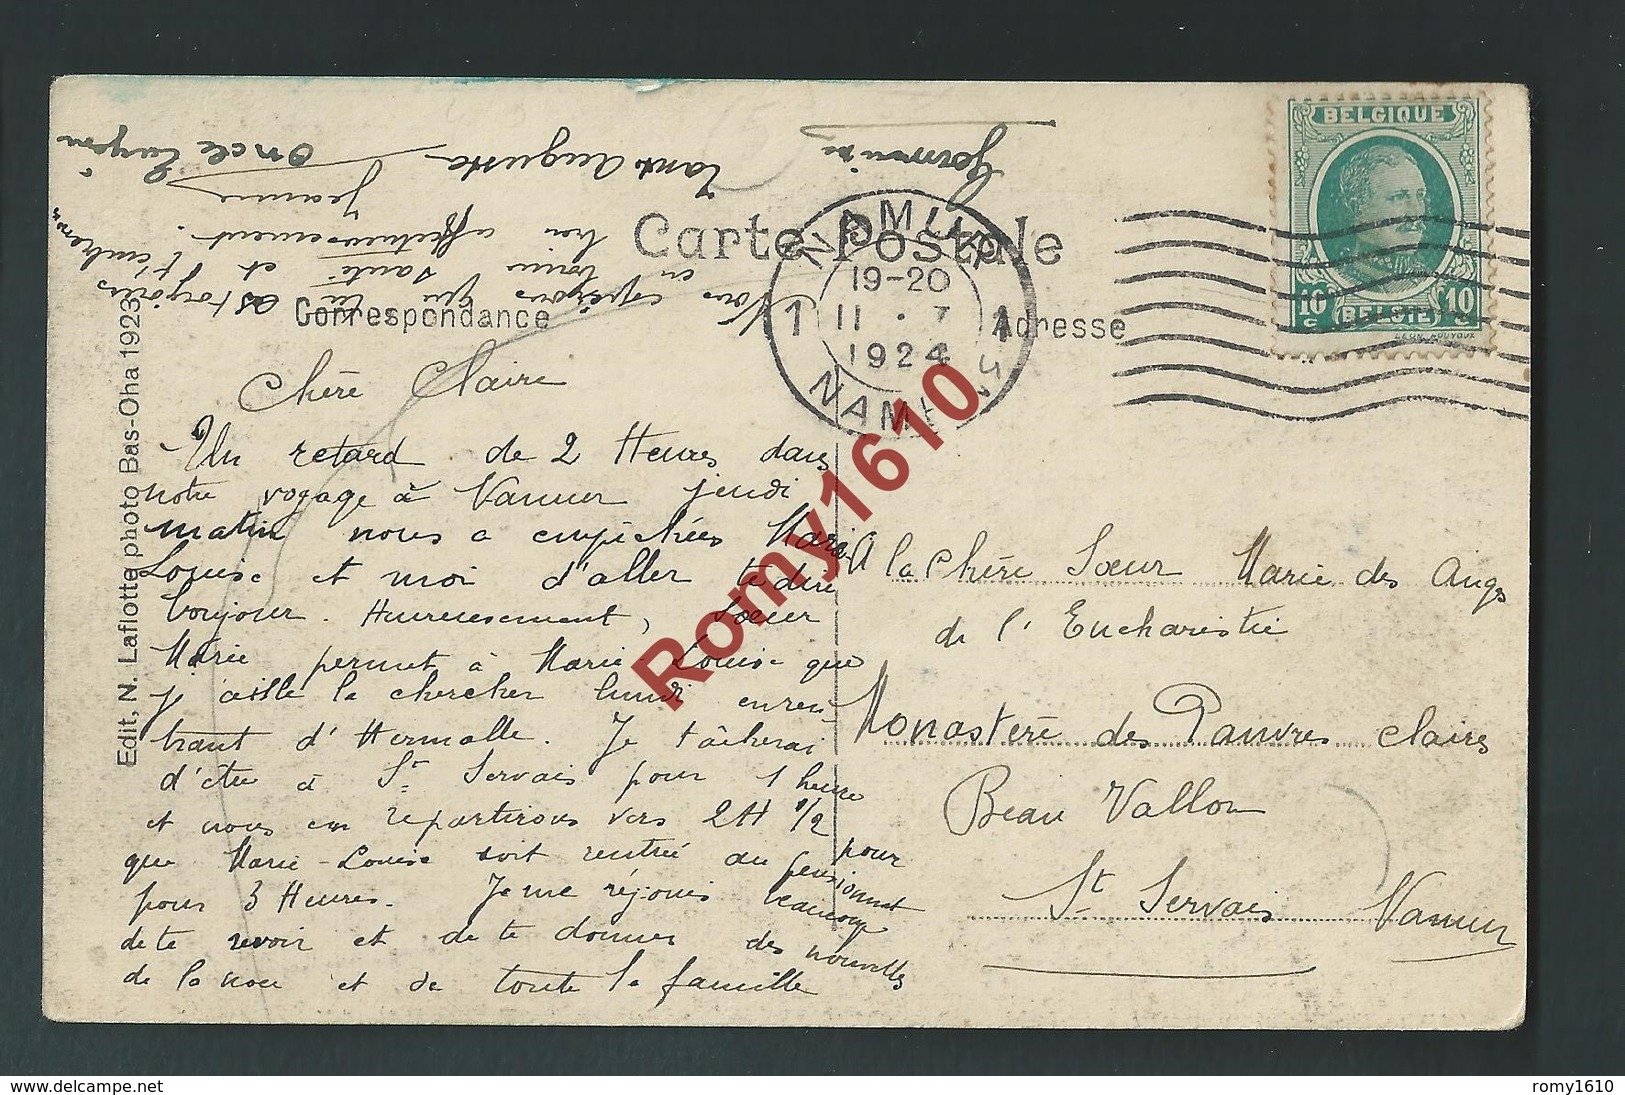 Carte Postale
Correspondance
Adresse
BELGIQUE
10 c
(BELGIE)
10 c
NAMUR
19-20
1 11 . 7 1
1924
NAMEN
Edit, N. Laflotte photo Bas-Oha 1923
Chère Claire
Un retard de 2 Heures dans
notre voyage à Namur jeudi
matin nous a empéchées Marie
Louise et moi d'aller te dire
bonjour. Heureusement, Soeur
Marie permet à Marie Louise que
j'aille la chercher lundi en ren-
trant d'Hermalle. Je tâcherai
d'être à St Servais pour 1 heure
et nous en repartirons vers 2H 1/2 pour
que Marie-Louise soit rentrée au pensionnat
pour 3 Heures. Je me réjouis beaucoup
de te revoir et de te donner des nouvelles
de la noce et de toute la famille
Nous espérons que tu es toujours
en bonne santé et t'embrassons
bien affectueusement.
Jeanne
Tante Augusta
Oncle
Germaine
A la Chère Sœur Marie des Anges
de l'Eucharistie
Monastère des Pauvres Claires
Beau Vallon
St Servais Namur
Romy1610
delcampe.net
romy1610